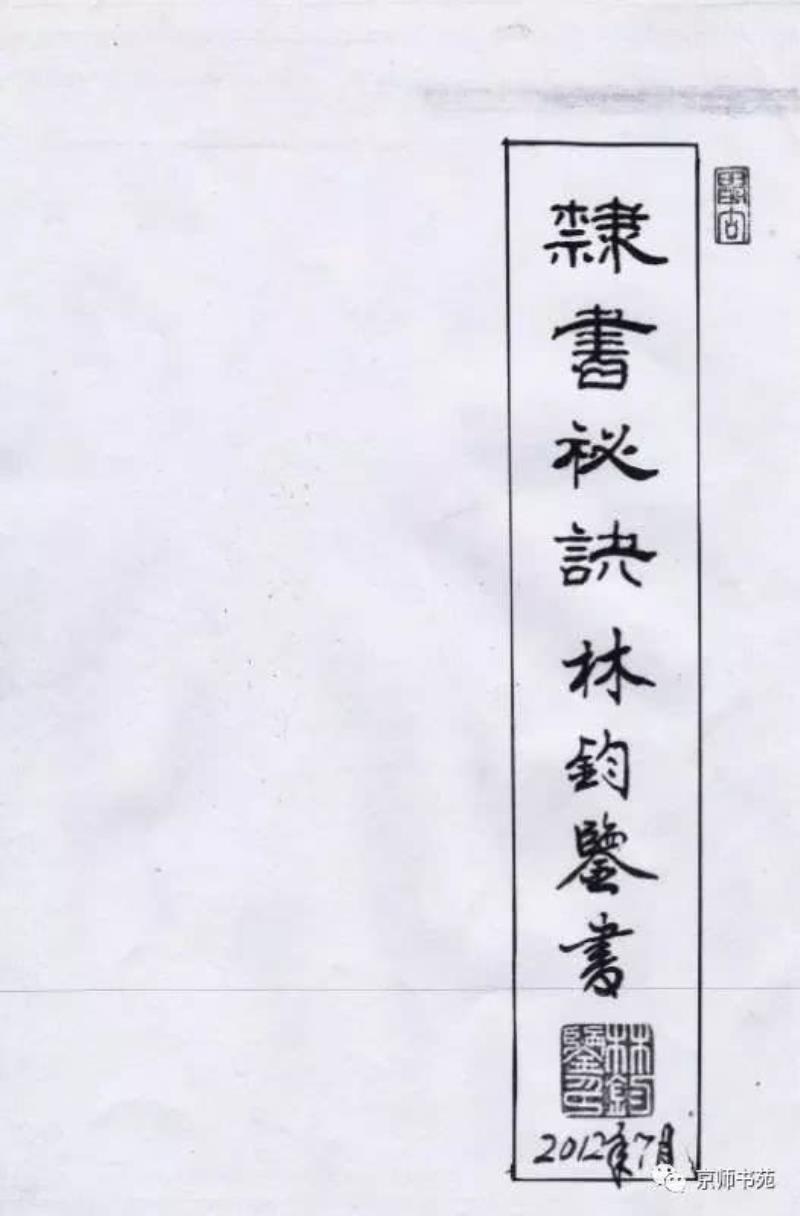 隸書祕訣林鈞鑒書
林鈞
鑒印
2012年7月
京师书苑